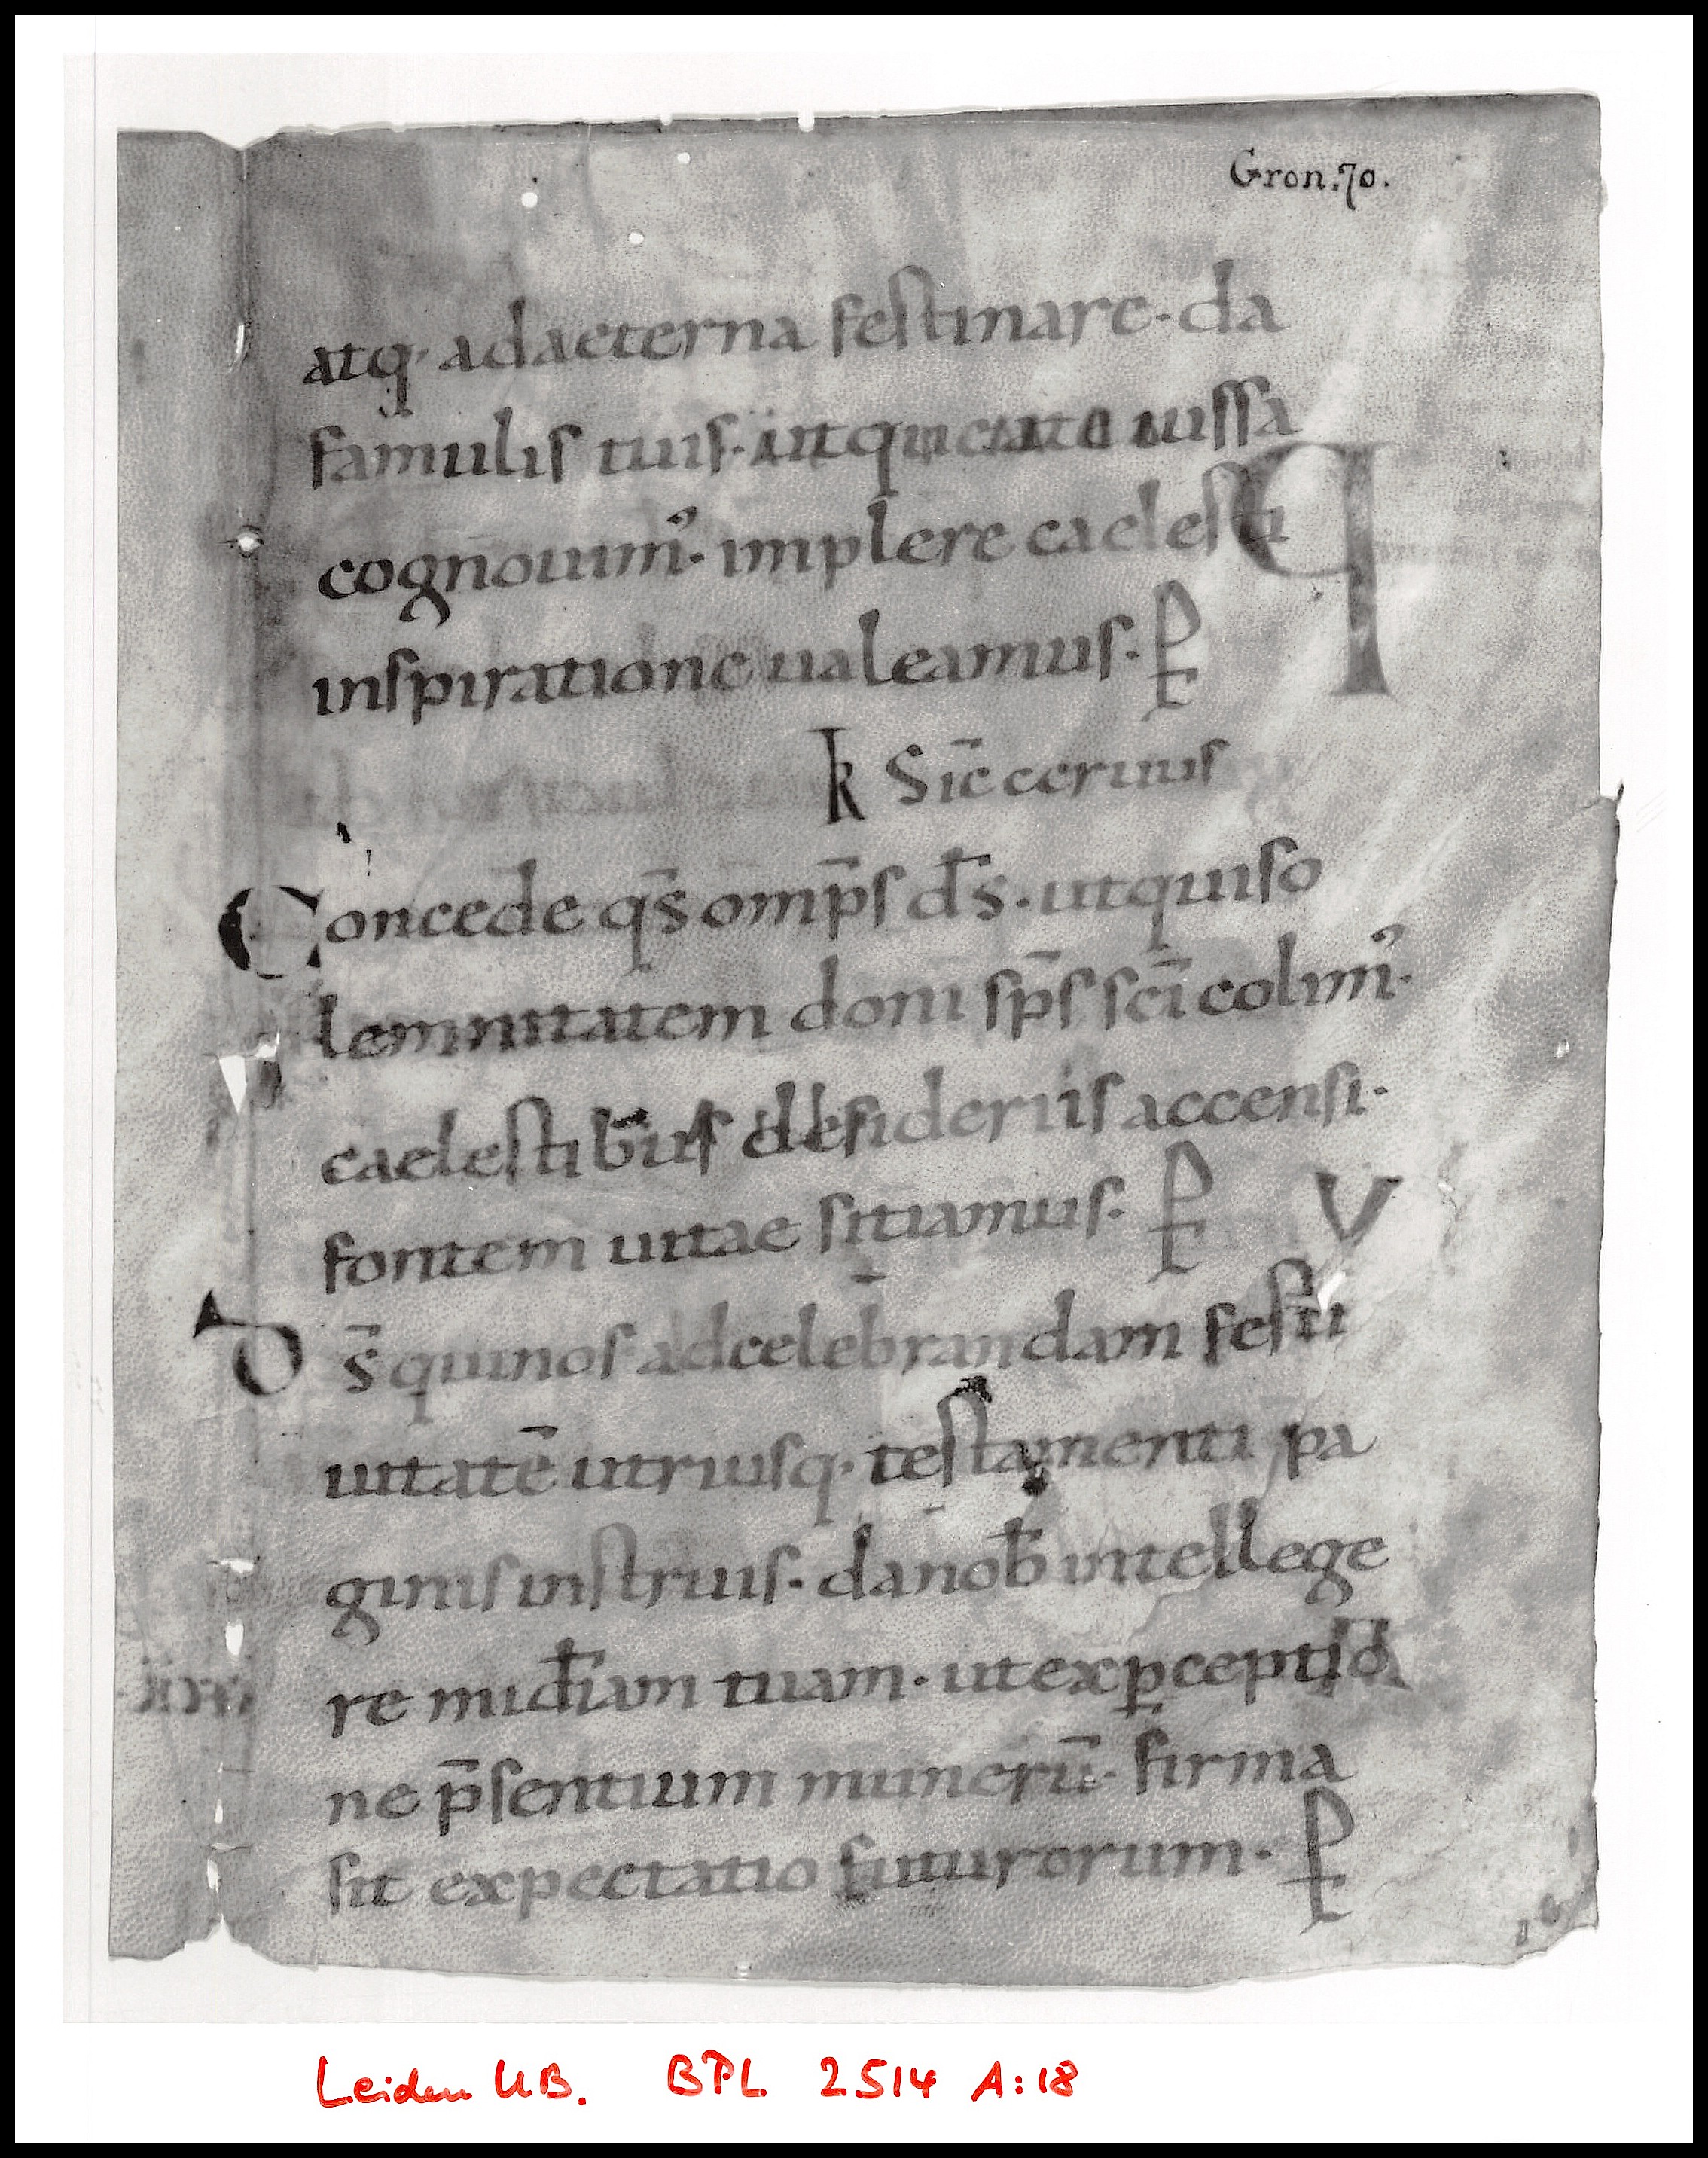 Gron. 70.
atq· adaeterna festinare· da
famulis tuis· ut quae a te iussa
cognouim᾿· implere caelesti
inspiratione ualeamus· P
k Sic̄ ceruus
Concede qs̄ omp̄s ds̄· utquiso
lemnitatem doni sp̄s sc̄i colim᾿·
caelestibus desideriis accensi·
fontem uitae sitiamus· P V
Ds̄ quinos adcelebrandam festi
uitatē utriusq· testamenti pa
ginis instruis· danob̄ intellege
re mid̄iam tuam· utexꝑceptio
ne p̄sentium munerū· firma
sit expectatio futurorum· P
Leiden UB. BPL 2514 A:18